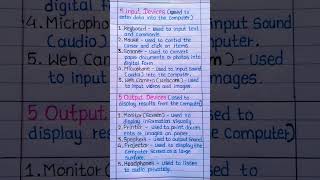 5 Input Devices (used to
enter data into the computer)
1. Keyboard - used to input text
and commands.
2. Mouse - used to control the
cursor and click on items.
3. Scanner - used to convert
paper documents or photos into
digital form.
4. Microphone - used to input sound
(audio) into the computer.
5. Web Camera (Webcam) - used
to input videos and images.
5 Output Devices (used to
display results from the computer)
1. Monitor (Screen) - used to
display information visually.
2. Printer - used to print documents
or images on paper.
3. Speakers - used to output sound.
4. Projector - used to display the
computer screen on a large
surface.
5. Headphones - used to listen
to audio privately.
digital fo
4. Microphon
(audio)
5. Web Cam
to input
5 Output
display res
1. Monitor
display
input sound
- used
mages.
used to
computer)
ed to
ally.